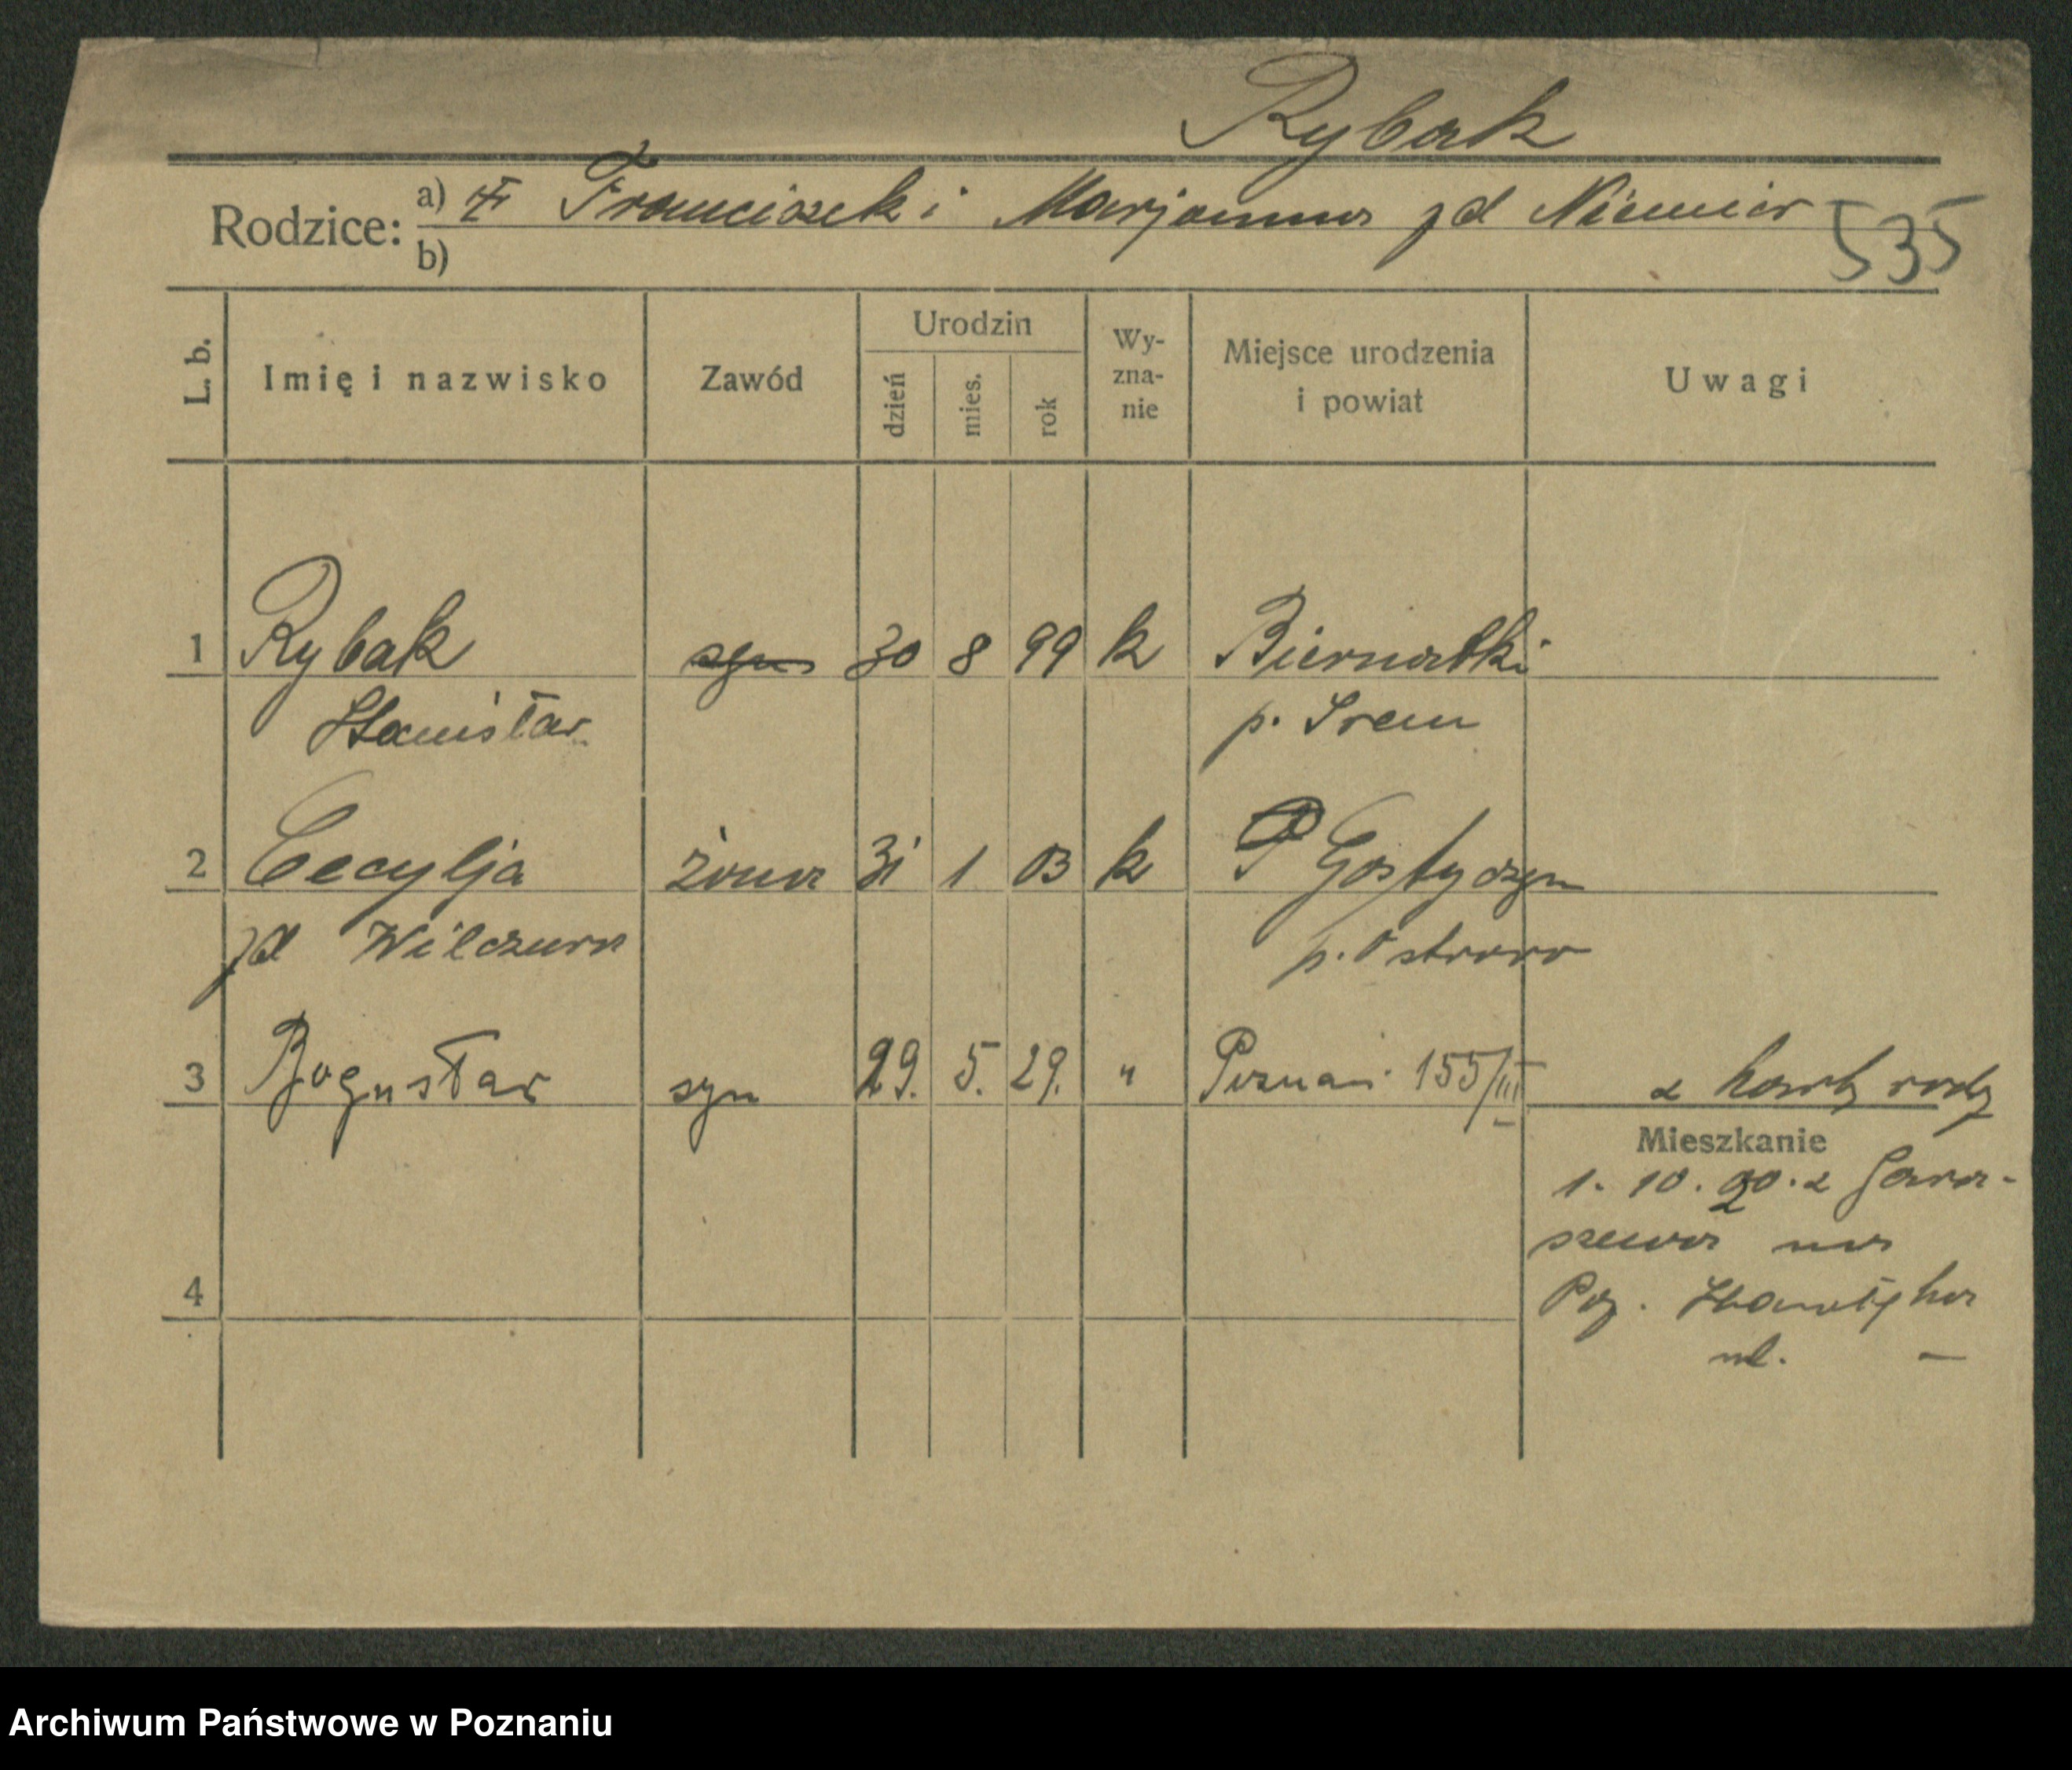 Rybak
Rodzice: a) Franciszek i Marjanna zd Niemier
b)
535
L. b.
Imię i nazwisko
Zawód
Urodzin
dzień
mies.
rok
Wy-
zna-
nie
Miejsce urodzenia
i powiat
Uwagi
1 Rybak syn 30 8 99 k Biernatki
Stanisław p. Srem
2 Cecylja żona 31 1 03 k P Gostyczyn
zd Wilczura p. Ostrowo
3 Bogusław syn 29. 5. 29. " Poznań 155/III z karty rodz
Mieszkanie
1. 10. 20. z Gara-
szewa na
Poz. Starołęka
ul. –
4
Archiwum Państwowe w Poznaniu